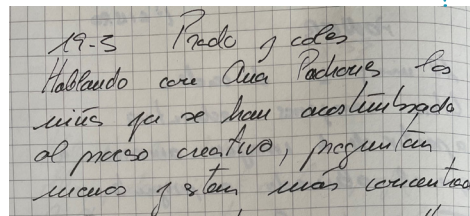 19-3 Prado y coles
Hablando con Ana Pachones los
niños ya se han acostumbrado
al proceso creativo, preguntan
menos y estan más concentrad